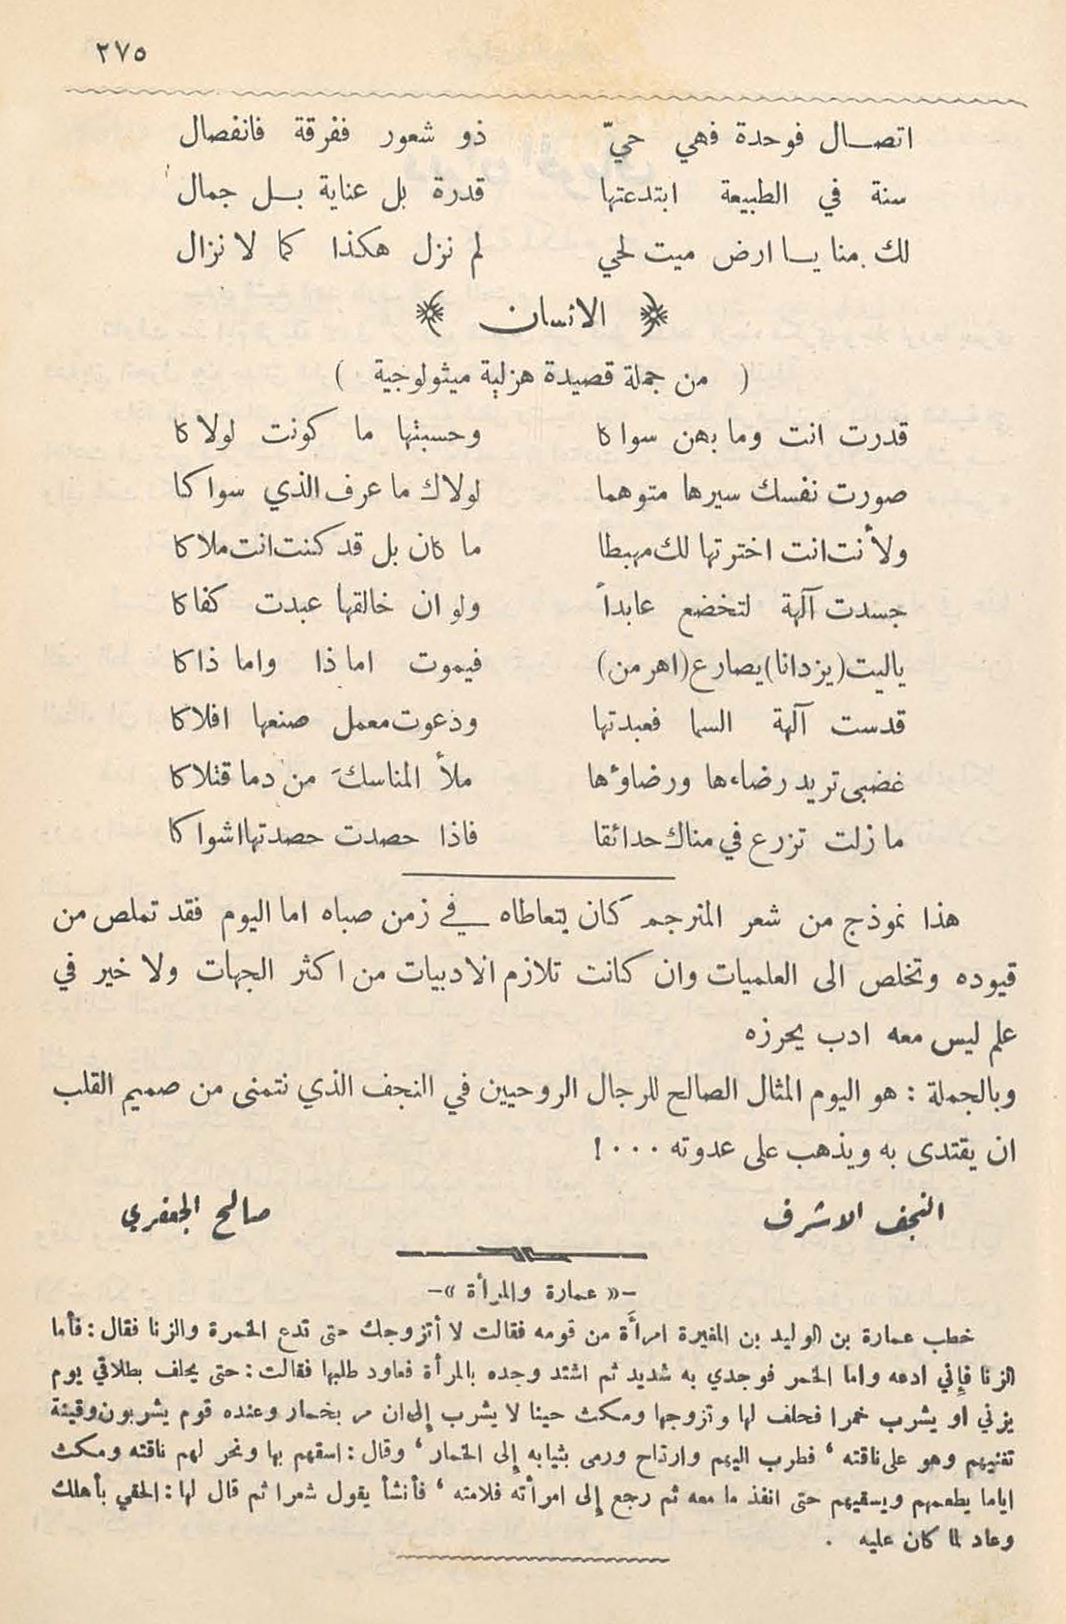 ٢٧٥
اتصـــال فوحدة فهي حيّ ذو شعور ففرقة فانفصال
سنة في الطبيعة ابتدعتها قدرة بل عناية بــل جمال
لك منا يــا ارض ميت لحي لم نزل هكذا كما لا نزال
الانسان
( من جملة قصيدة هزلية ميثولوجية )
قدرت انت وما بهن سواكا وحسبتها ما كونت لولاكا
صورت نفسك سيرها متوهما لولاك ما عرف الذي سواكا
ولأنت انت اخترتها لك مهبطا ما كان بل قد كنت انت ملاكا
جسدت آلهة لتخضع عابداً ولو ان خالقها عبدت كفاكا
ياليت (يزدانا) يصارع (اهرمن) فيموت اما ذا واما ذاكا
قدست آلهة السما فعبدتها ودعوت معمل صنعها افلاكا
غضبى تريد رضاءها ورضاؤها ملأ المناسكَ من دما قتلاكا
ما زلت تزرع في مناك حدائقا فاذا حصدت حصدتها اشواكا
هذا نموذج من شعر المترجم كان يتعاطاه في زمن صباه اما اليوم فقد تملص من
قيوده وتخلص الى العلميات وان كانت تلازم الادبيات من اكثر الجهات ولا خير في
علم ليس معه ادب يحرزه
وبالجملة : هو اليوم المثال الصالح للرجال الروحيين في النجف الذي نتمنى من صميم القلب
ان يقتدى به ويذهب على عدوته ٠٠٠!
النجف الاشرف صالح الجعفري
-« عمارة والمرأة »-
خطب عمارة بن الوليد بن المغيرة امرأة من قومه فقالت لا أتزوجك حتى تدع الخمرة والزنا فقال : فأما
الزنا فإني ادعه واما الخمر فوجدي به شديد ثم اشتد وجده بالمرأة فعاود طلبها فقالت : حتى يحلف بطلاقي يوم
يزني او يشرب خمرا فحلف لها وتزوجها ومكث حينا لا يشرب إلى ان مر بخمار وعنده قوم يشربون وقينة
تغنيهم وهو على ناقته ، فطرب اليهم وارتاح ورمى بثيابه إلى الخمار ، وقال : اسقهم بها ونحر لهم ناقته ومكث
اياما يطعمهم ويسقيهم حتى انفذ ما معه ثم رجع إلى امرأته فلامته ، فأنشأ يقول شعرا ثم قال لها : الحقي بأهلك
وعاد لما كان عليه .